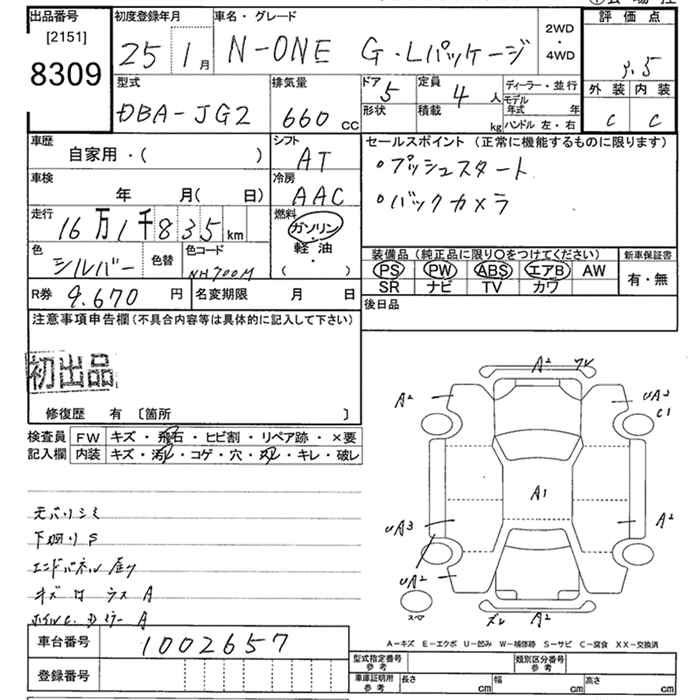 出品番号
[2151]
8309
初度登録年月
25 1 月
車名・グレード
N-ONE G・Lパッケージ
2WD
・
4WD
評価点
3.5
外装 内装
C C
型式
DBA-JG2
排気量
660 cc
ドア 5
形状
定員 4 人
積載 kg
ディーラー・並行
モデル年式 年
ハンドル 左・右
車歴
自家用・( )
シフト
AT
車検
年 月( 日)
冷房
AAC
走行
16万1千835 km
燃料
ガソリン
・
軽油
( )
色
シルバー
色替
色コード
NH700M
R券 9,670 円
名変期限 月 日
セールスポイント(正常に機能するものに限ります)
・プッシュスタート
・バックカメラ
装備品(純正品に限り〇をつけてください)
新車保証書
PS PW ABS エアB AW
SR ナビ TV カワ
有・無
後日品
注意事項申告欄(不具合内容等は具体的に記入して下さい)
初出品
修復歴 有 〔箇所 〕
検査員
記入欄
FW キズ・飛石・ヒビ割・リペア跡・×要
内装 キズ・汚れ・コゲ・穴・スレ・キレ・破レ
下回りS
エンドパネル
キズ A
A
車台番号 1002657
登録番号
A² A² UA² C1
A1
UA3 A²
UA²
スペア
ズレ A²
A-キズ E-エクボ U-凹み W-補修跡 S-サビ C-腐食 XX-交換済
型式指定番号
参考
類別区分番号
参考
車庫証明用
参考
長さ cm 幅 cm 高さ cm